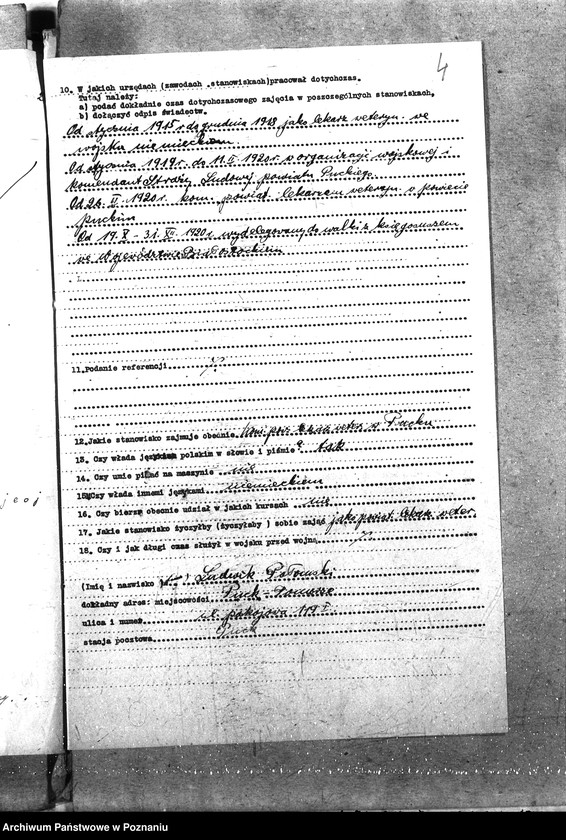 4
10. W jakich urzędach (zawodach ,stanowiskach)pracował dotychczas.
Tutaj należy:
a) podać dokładnie czas dotychczasowego zajęcia w poszczególnych stanowiskach,
b) dołączyć odpis świadectw.
Od stycznia 1915 r. do grudnia 1918 jako lekarz veteryn. we
wojsku niemieckiem.
Od stycznia 1919 r. do 11.II. 1920 r. w organizacji wojskowej i
komendant Straży Ludowej powiatu Puckiego.
Od 26. V. 1920 r. kom. powiat. lekarzem veteryn. w powiecie
puckim
Od 19. X - 31. XII. 1920 r. wydelegowany do walki z księgosuszem
we Województwie Białostockiem
11.Podanie referencji
12.Jakie stanowisko zajmuje obecnie kom. pow. lekarz veter. w Pucku
13. Czy włada językiem polskim w słowie i piśmie? tak
14. Czy umie pisać na maszynie nie
15.Czy włada innemi językami niemieckiem
16. Czy bierze obecnie udział w jakich kursach nie
17. Jakie stanowisko życzyłby (życzyłaby ) sobie zająć jako powiat. lekarz veter.
18. Czy i jak długi czas służył w wojsku przed wojną
(Imię i nazwisko ) Ludwik
dokładny adres: miejscowości Puck - Pomorze
ulica i numer ul. pokojowa 119 I
stacja pocztowa Puck
jcoj
Archiwum Państwowe w Poznaniu